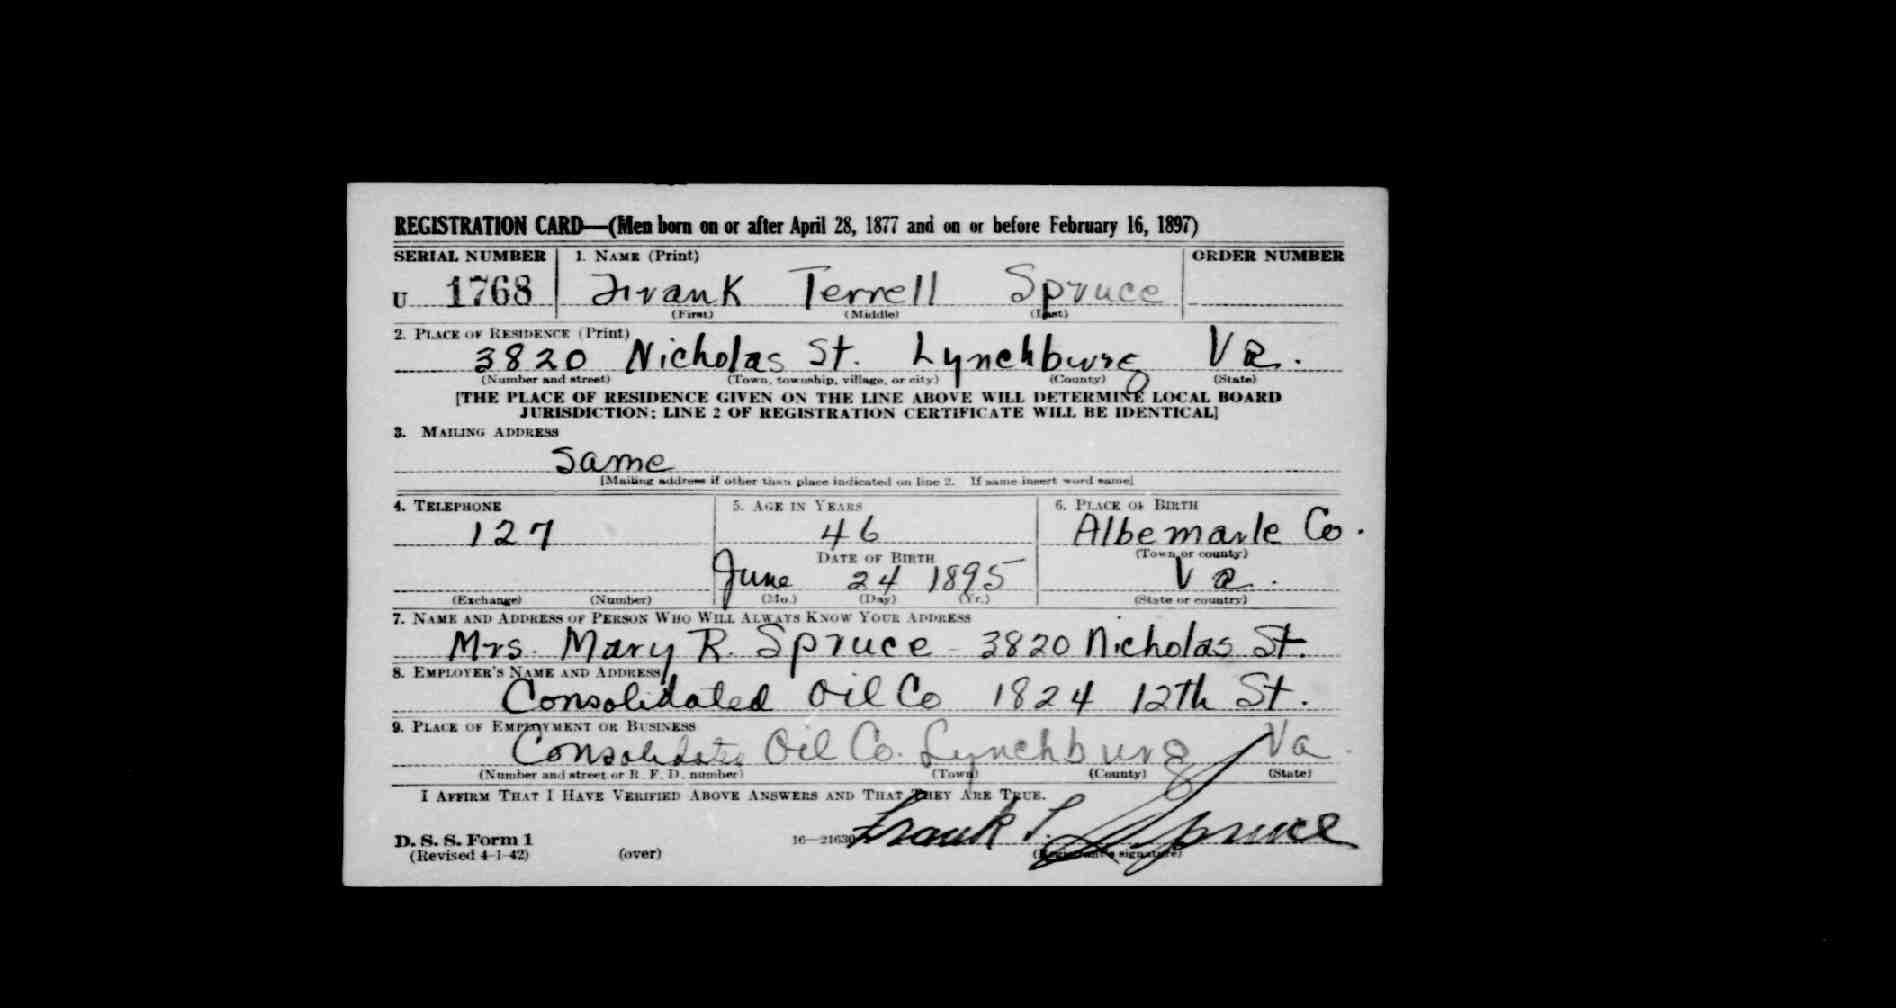 REGISTRATION CARD—(Men born on or after April 28, 1877 and on or before February 16, 1897)
SERIAL NUMBER 1. NAME (Print) ORDER NUMBER
U 1768 Frank Terrell Spruce
(First) (Middle) (Last)
2. PLACE OF RESIDENCE (Print)
3820 Nicholas St. Lynchburg Va.
(Number and street) (Town, township, village, or city) (County) (State)
[THE PLACE OF RESIDENCE GIVEN ON THE LINE ABOVE WILL DETERMINE LOCAL BOARD
JURISDICTION; LINE 2 OF REGISTRATION CERTIFICATE WILL BE IDENTICAL]
3. MAILING ADDRESS
Same
[Mailing address if other than place indicated on line 2. If same insert word same]
4. TELEPHONE 5. AGE IN YEARS 6. PLACE OF BIRTH
127 46 Albemarle Co.
DATE OF BIRTH (Town or county)
June 24 1895 Va.
(Exchange) (Number) (Mo.) (Day) (Yr.) (State or country)
7. NAME AND ADDRESS OF PERSON WHO WILL ALWAYS KNOW YOUR ADDRESS
Mrs. Mary R. Spruce - 3820 Nicholas St.
8. EMPLOYER'S NAME AND ADDRESS
Consolidated Oil Co 1824 12th St.
9. PLACE OF EMPLOYMENT OR BUSINESS
Consolidate Oil Co. Lynchburg Va.
(Number and street or R. F. D. number) (Town) (County) (State)
I AFFIRM THAT I HAVE VERIFIED ABOVE ANSWERS AND THAT THEY ARE TRUE.
D. S. S. Form 1 16—21630 Frank T. Spruce
(Revised 4-1-42) (over) (Registrant's signature)